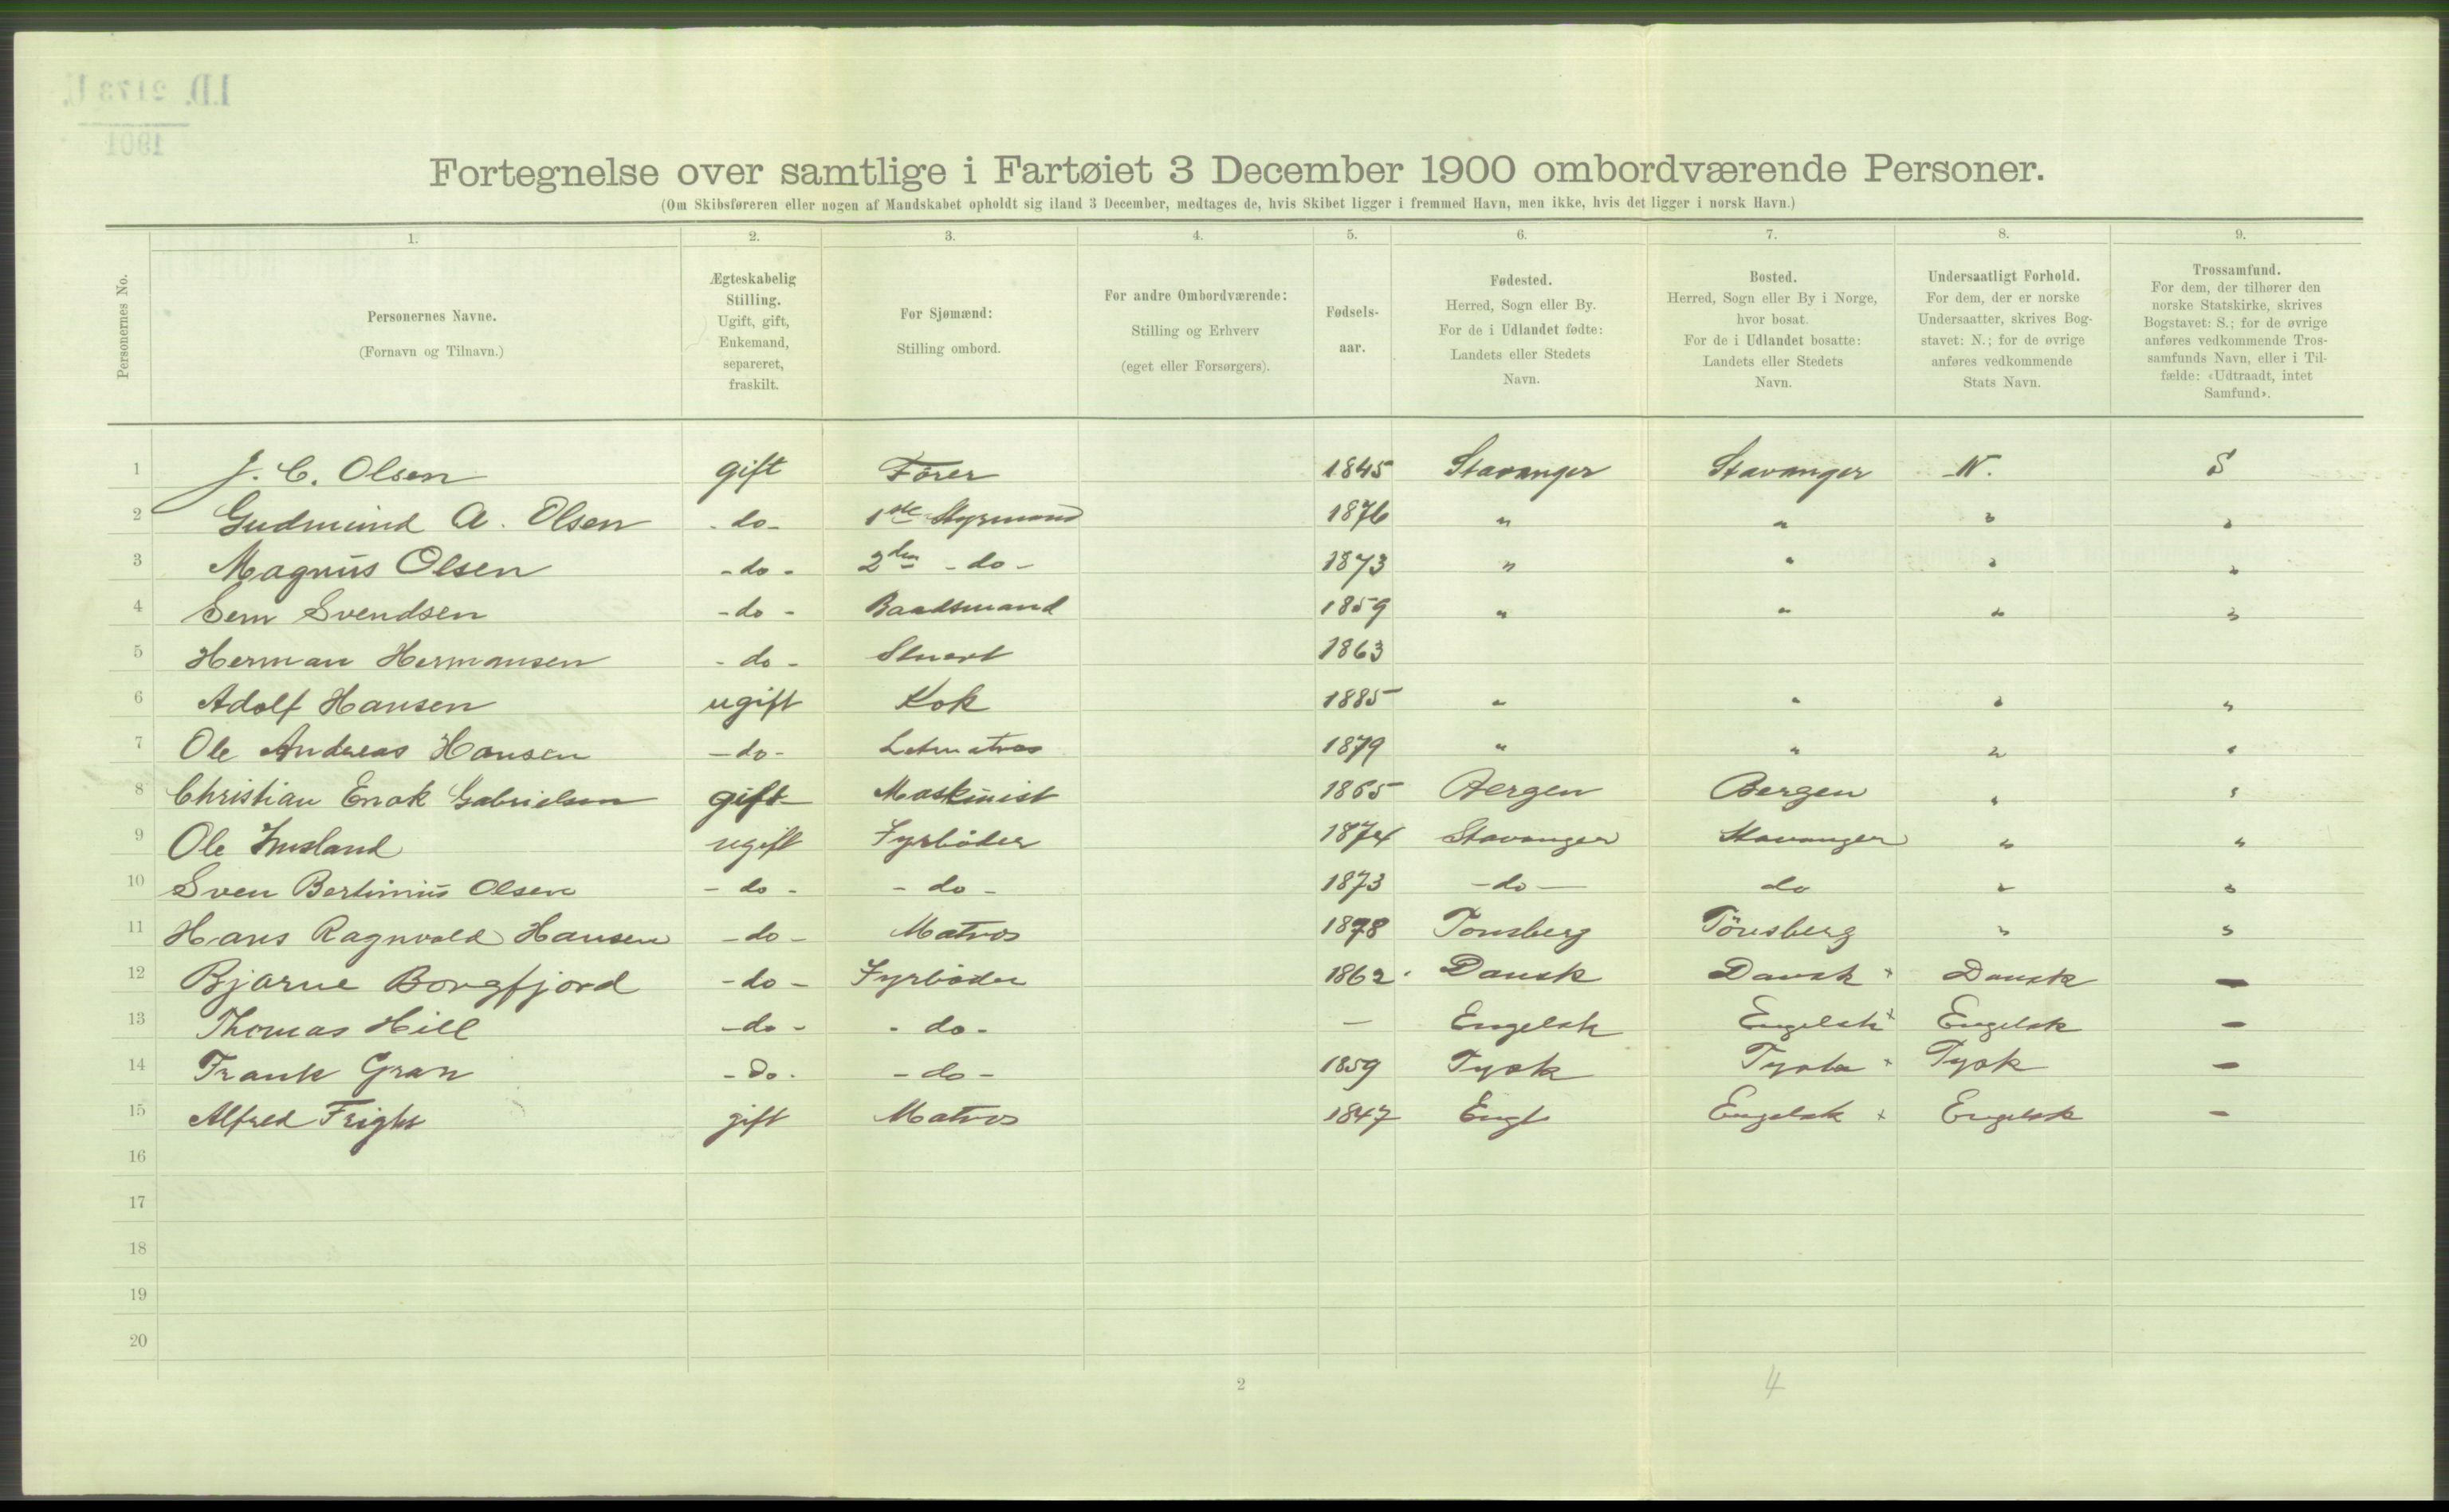 I.D. 2173 U.
1901
Fortegnelse over samtlige i Fartøiet 3 December 1900 ombordværende Personer.
(Om Skibsføreren eller nogen af Mandskabet opholdt sig iland 3 December, medtages de, hvis Skibet ligger i fremmed Havn, men ikke, hvis det ligger i norsk Havn.)
Personernes No.
1. 2. 3. 4. 5. 6. 7. 8. 9.
Personernes Navne.
(Fornavn og Tilnavn.)
Ægteskabelig
Stilling.
Ugift, gift,
Enkemand,
separeret,
fraskilt.
For Sjømænd:
Stilling ombord.
For andre Ombordværende:
Stilling og Erhverv
(eget eller Forsørgers).
Fødsels-
aar.
Fødested.
Herred, Sogn eller By.
For de i Udlandet fødte:
Landets eller Stedets
Navn.
Bosted.
Herred, Sogn eller By i Norge,
hvor bosat.
For de i Udlandet bosatte:
Landets eller Stedets
Navn.
Undersaatligt Forhold.
For dem, der er norske
Undersaatter, skrives Bog-
stavet: N.; for de øvrige
anføres vedkommende
Stats Navn.
Trossamfund.
For dem, der tilhører den
norske Statskirke, skrives
Bogstavet: S.; for de øvrige
anføres vedkommende Tros-
samfunds Navn, eller i Til-
fælde: «Udtraadt, intet
Samfund».
1 J. C. Olsen gift Förer 1845 Stavanger Stavanger N. S
2 Gudmund A. Olsen - do - 1ste Styrmand 1876 " " " "
3 Magnus Olsen - do - 2den - do - 1873 " " " "
4 Sem Svendsen - do - Baadsmand 1859 " " " "
5 Herman Hermansen - do - Stuert 1863
6 Adolf Hansen ugift Kok 1885 " " " "
7 Ole Andreas Hansen - do - Letmatros 1879 " " " "
8 Christian Enok Gabrielsen gift Maskinist 1865 Bergen Bergen " "
9 Ole ugift Fyrböder 1874 Stavanger Stavanger " "
10 Sven Bertinius Olsen - do - - do - 1873 - do - do " "
11 Hans Ragnvald Hansen - do - Matros 1878 Tönsberg Tönsberg " "
12 Bjarne Borgfjord - do - Fyrböder 1862 Dansk Dansk × Dansk -
13 Thomas Hill - do - - do - - Engelsk Engelsk × Engelsk -
14 Frank Gran - Do - - do - 1859 Tysk Tysk × Tysk -
15 Alfred gift Matros 1847 Engl Engelsk × Engelsk -
16
17
18
19
20
2
4